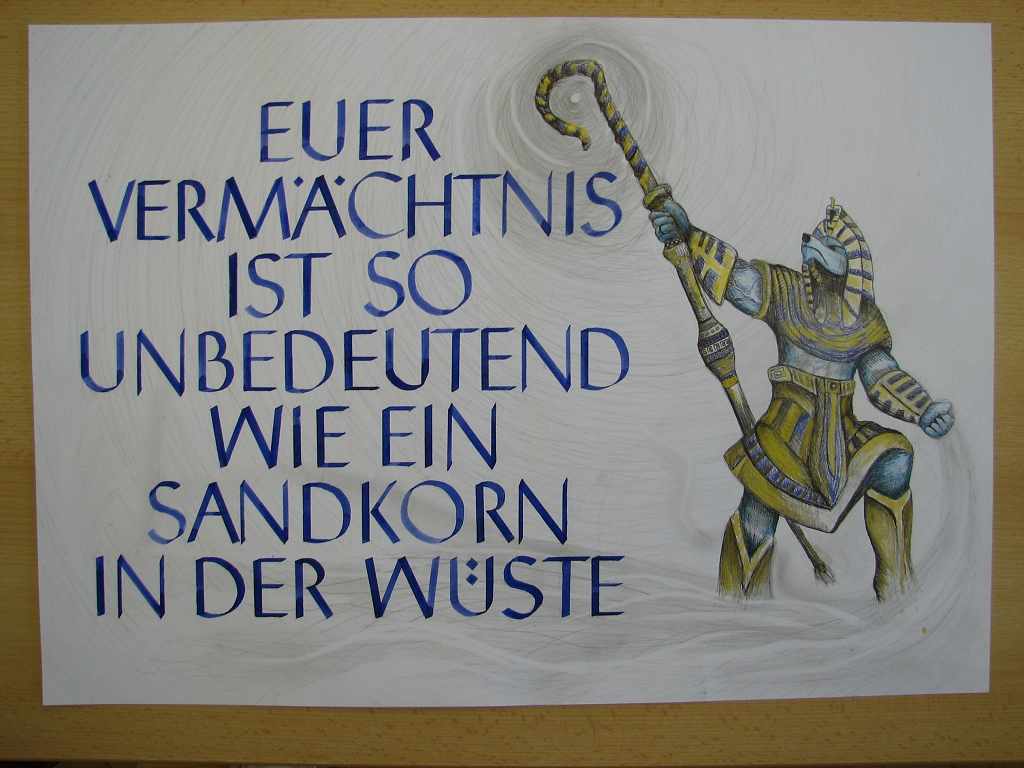 EUER
VERMÄCHTNIS
IST SO
UNBEDEUTEND
WIE EIN
SANDKORN
IN DER WÜSTE